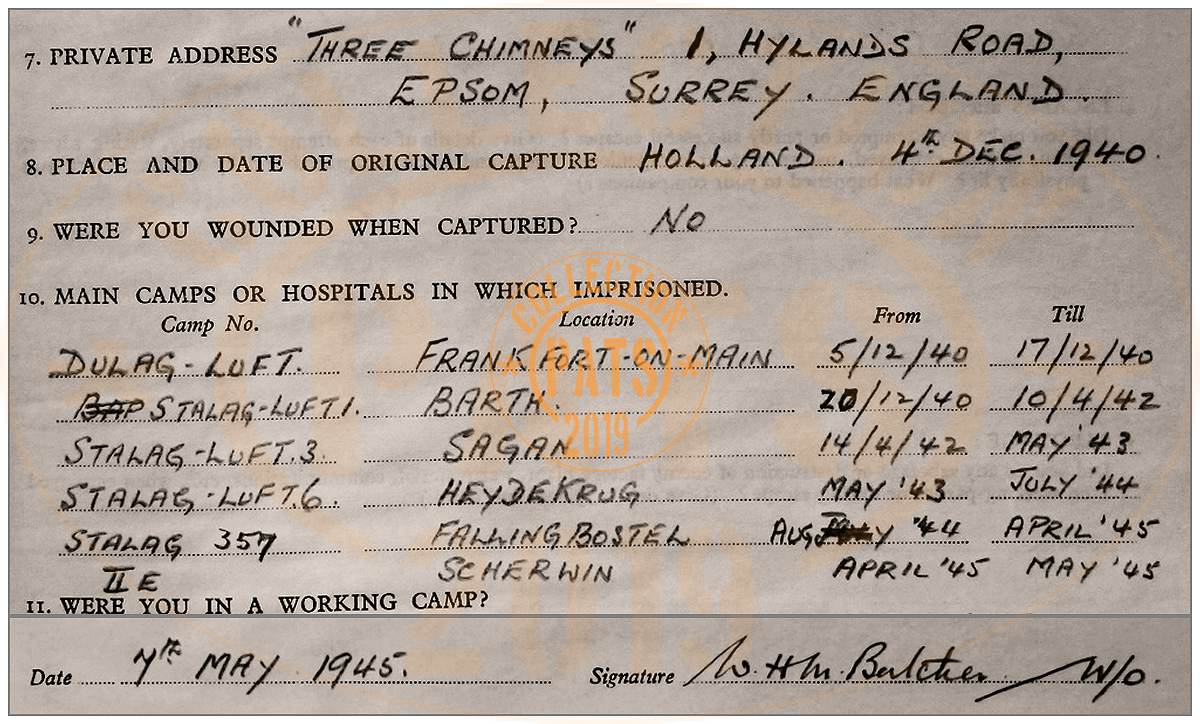 7. PRIVATE ADDRESS "THREE CHIMNEYS" 1, HYLANDS ROAD,
EPSOM, SURREY. ENGLAND.
8. PLACE AND DATE OF ORIGINAL CAPTURE HOLLAND. 4th DEC. 1940.
9. WERE YOU WOUNDED WHEN CAPTURED? NO
10. MAIN CAMPS OR HOSPITALS IN WHICH IMPRISONED.
Camp No. Location From Till
DULAG-LUFT. FRANKFORT-ON-MAIN 5/12/40 17/12/40
BAP STALAG-LUFT 1. BARTH. 20/12/40 10/4/42
STALAG-LUFT.3. SAGAN 14/4/42 MAY '43
STALAG-LUFT.6. HEYDEKRUG MAY '43 JULY '44
STALAG 357 FALLINGBOSTEL AUG '44 APRIL '45
IIE SCHERWIN APRIL '45 MAY '45
11. WERE YOU IN A WORKING CAMP?
Date 7th MAY 1945. Signature W. H. M. Butcher W/O.
COLLECTION
PATS
2019